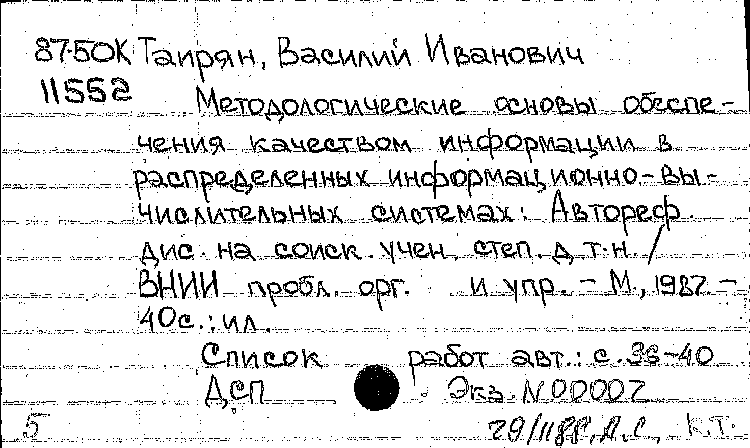 87-50К Таирян, Василий Иванович
11552 Методологические основы обеспе-
чения качеством информации в
распределенных информационно-вы-
числительных системах: Автореф.
дис. на соиск. учен. степ. д.т.н. /
ВНИИ пробл. орг. и упр. - М., 1987. -
40с.: ил.
Список работ авт.: с. 36-40
ДСП . Экз. N 00007
5 К.Т.